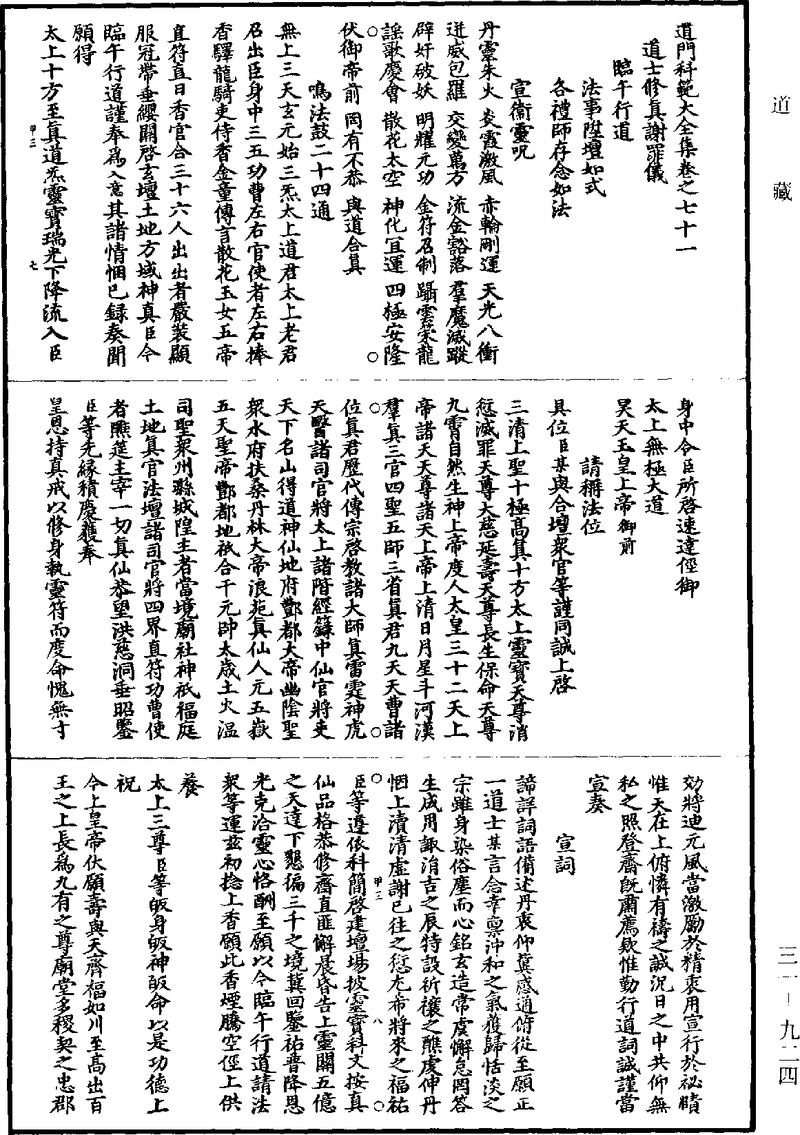 道藏
道門科範大全集卷之七十一
道士修真謝罪儀
臨午行道
法事陞壇如式
各禮師存念如法
宣衞靈呪
丹靈朱火 炎霞激風 赤輪剛運 天光八衝
迸威包羅 交變萬方 流金豁落 羣魔滅蹤
辟奸破妖 明耀元功 金符召制 躡雲策龍
謡歌慶會 散花太空 神化冝運 四極安隆
伏御帝前 罔有不恭 與道合真
鳴法鼓二十四通
無上三天玄元始三炁太上道君太上老君
召出臣身中三五功曹左右官使者左右捧
香驛龍騎吏侍香金童傳言散花玉女五帝
直符直日香官合三十六人出出者嚴裝顯
服冠帶垂纓關啓玄壇土地方域神真臣今
臨午行道謹奉爲入意其諸情悃已録奏聞
願得
太上十方至真道炁靈寶瑞光下降流入臣
甲三 七
身中令臣所啓速達俓御
太上無極大道
昊天玉皇上帝御前
請稱法位
具位臣某與合壇衆官等謹同誠上啓
三清上聖十極高真十方太上靈寶天尊消
愆滅罪天尊大慈延壽天尊長生保命天尊
九霄自然生神上帝度人太皇三十二天上
帝諸天天尊諸天上帝上清日月星斗河漢
羣真三官四聖五師三省真君九天天曹諸
位真君歷代傳宗啓教諸大師真雷霆神虎
天醫諸司官將太上諸階經籙中仙官將吏
天下名山得道神仙地府酆都大帝幽陰聖
衆水府扶桑丹林大帝浪苑真仙人元五嶽
五天聖帝酆都地祇合千元帥太歲土火溫
司聖衆州縣城隍主者當境廟社神祇福庭
土地真官法壇諸司官將四界直符功曹使
者醮筵主宰一切真仙恭望洪慈洞垂昭鑒
臣等先緣積慶獲奉
皇恩持真戒以修身執靈符而度命愧無寸
効將迪元風當激勵於精衷用宣行於祕賾
惟天在上俯憐有禱之誠況日之中共仰無
私之照登齋旣肅薦欵惟勤行道詞誠謹當
宣奏
宣詞
諦詳詞語備述丹衷仰冀感通俯從至願正
一道士某言念幸稟沖和之氣獲歸恬淡之
宗雖身染俗塵而心銘玄造常虞懈怠罔答
生成用諏涓吉之辰特設祈禳之醮虔伸丹
悃上瀆清虛謝已往之愆尤希將來之福祐
甲三 八
臣等遵依科簡啓建壇場披靈寶科文按真
仙品格恭修齋直匪懈晨昏告上靈關五億
之天達下懇徧三千之境冀回鑒祐普降恩
光克洽靈心恪酬至願以今臨午行道請法
衆等運茲初捻上香願此香煙騰空俓上供
養
太上三尊臣等皈身皈神皈命以是功德上
祝
今上皇帝伏願壽與天齊福如川至高出百
王之上長爲九有之尊廟堂多稷契之忠郡
三一－九二四